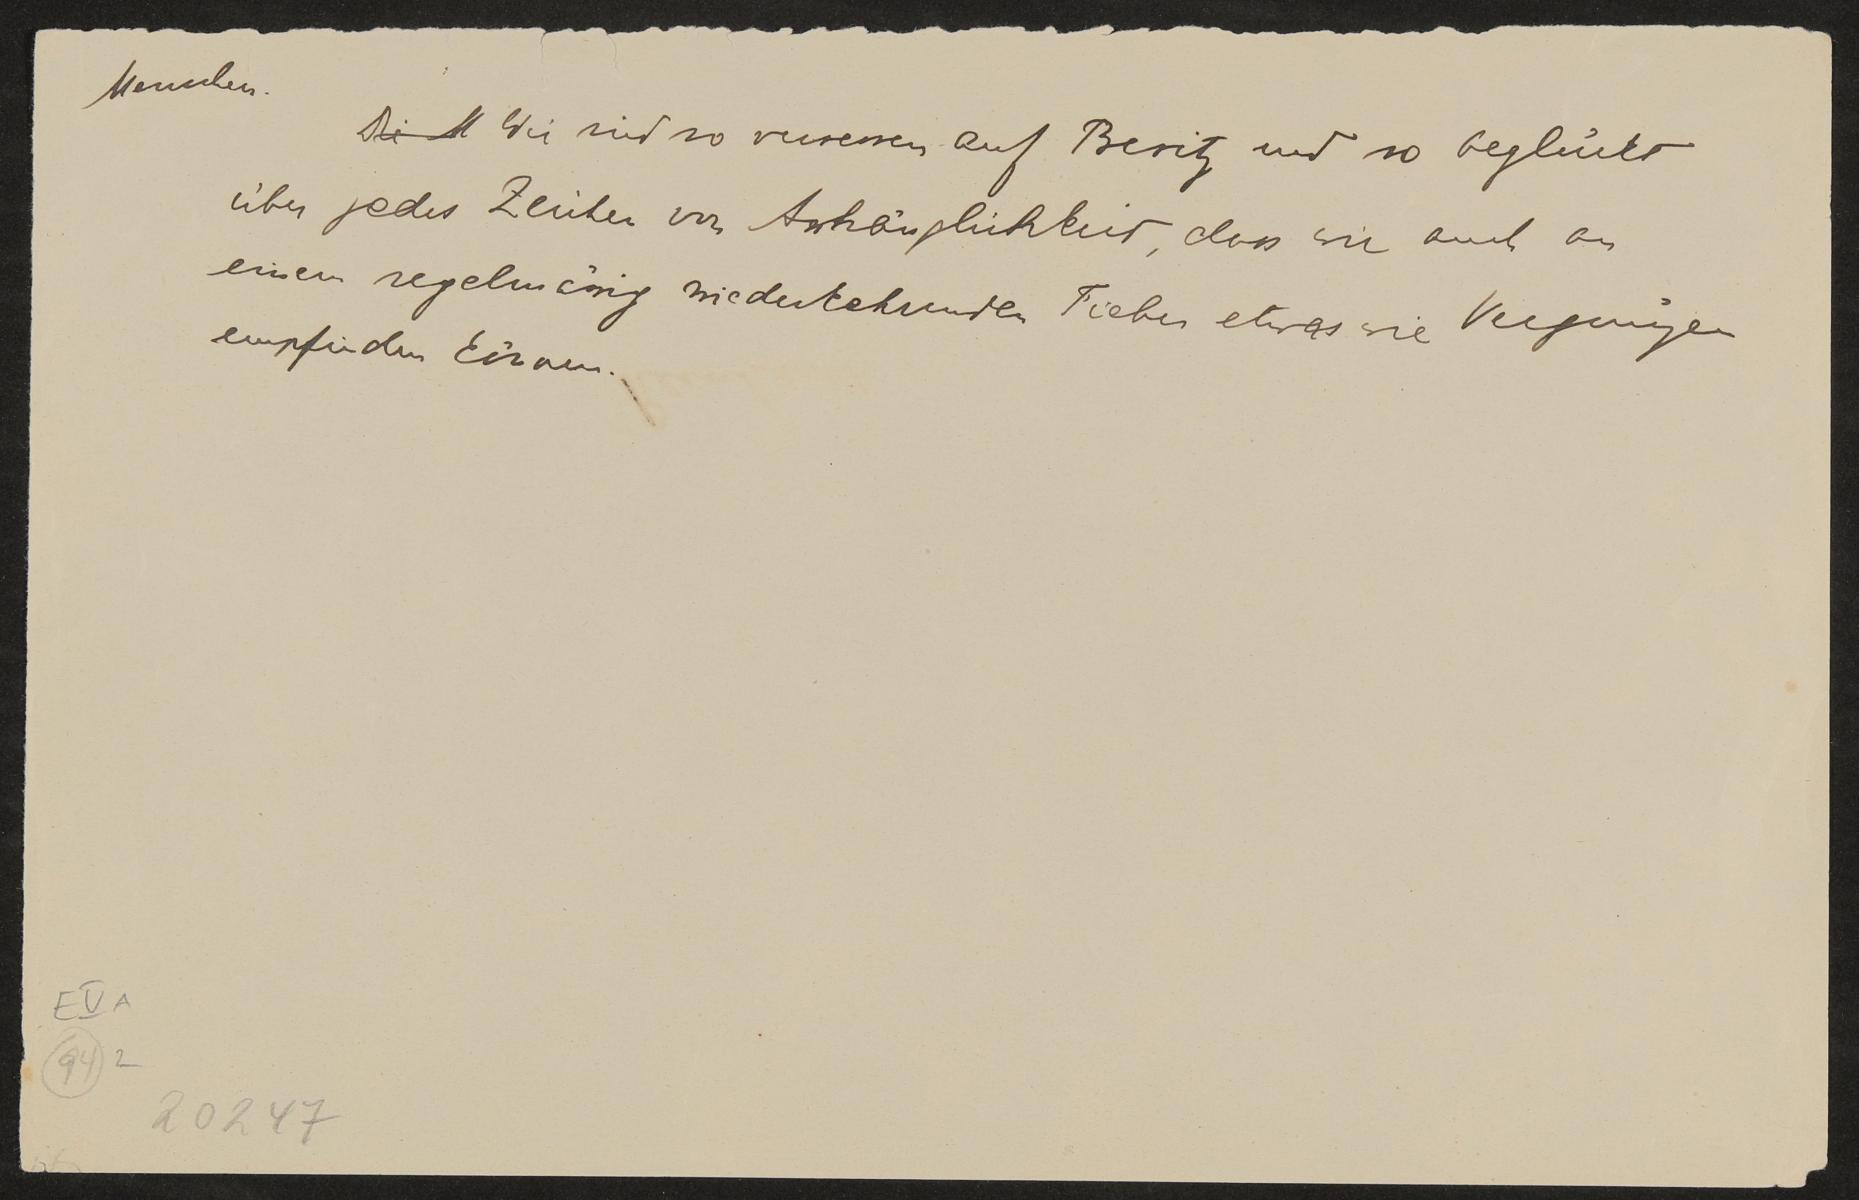 Menschen.
Die M Wir sind so versessen auf Besitz und so beglückt
über jedes Zeichen von Anhänglichkeit, dass wir auch an
einem regelmässig wiederkehrenden Fieber etwas wie Vergnügen
empfinden können.
E V A
94 2
20247